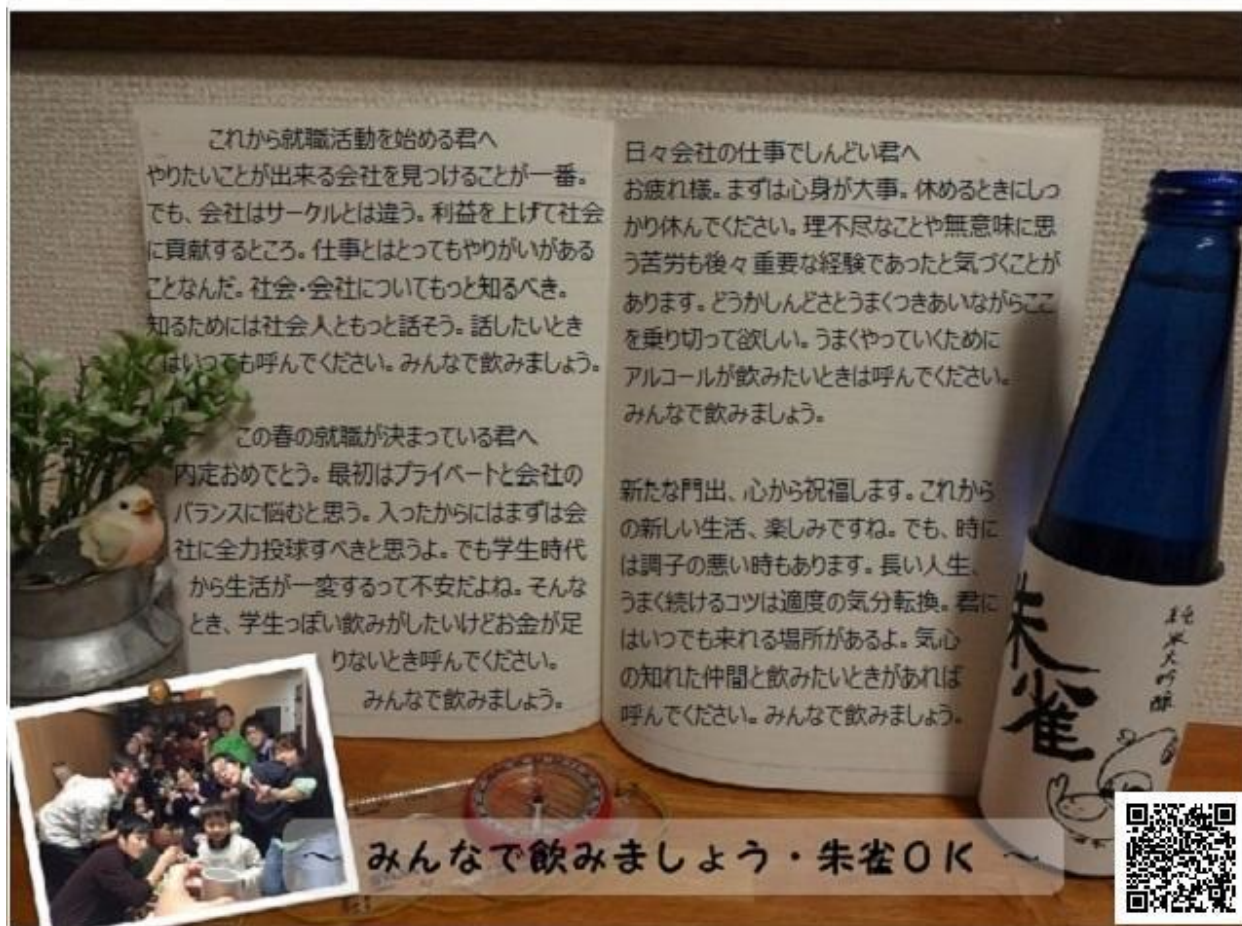 これから就職活動を始める君へ
やりたいことが出来る会社を見つけることが一番。
でも、会社はサークルとは違う。利益を上げて社会
に貢献するところ。仕事とはとってもやりがいがある
ことなんだ。社会・会社についてもっと知るべき。
知るためには社会人ともっと話そう。話したいとき
はいつでも呼んでください。みんなで飲みましょう。
この春の就職が決まっている君へ
内定おめでとう。最初はプライベートと会社の
バランスに悩むと思う。入ったからにはまずは会
社に全力投球すべきと思うよ。でも学生時代
から生活が一変するって不安だよね。そんな
とき、学生っぽい飲みがしたいけどお金が足
りないとき呼んでください。
みんなで飲みましょう。
日々会社の仕事でしんどい君へ
お疲れ様。まずは心身が大事。休めるときにしっ
かり休んでください。理不尽なことや無意味に思
う苦労も後々重要な経験であったと気づくことが
あります。どうかしんどさとうまくつきあいながらここ
を乗り切って欲しい。うまくやっていくために
アルコールが飲みたいときは呼んでください。
みんなで飲みましょう。
新たな門出、心から祝福します。これから
の新しい生活、楽しみですね。でも、時に
は調子の悪い時もあります。長い人生、
うまく続けるコツは適度の気分転換。君に
はいつでも来れる場所があるよ。気心
の知れた仲間と飲みたいときがあれば
呼んでください。みんなで飲みましょう。
純米大吟醸
朱雀
みんなで飲みましょう・朱雀OK ～